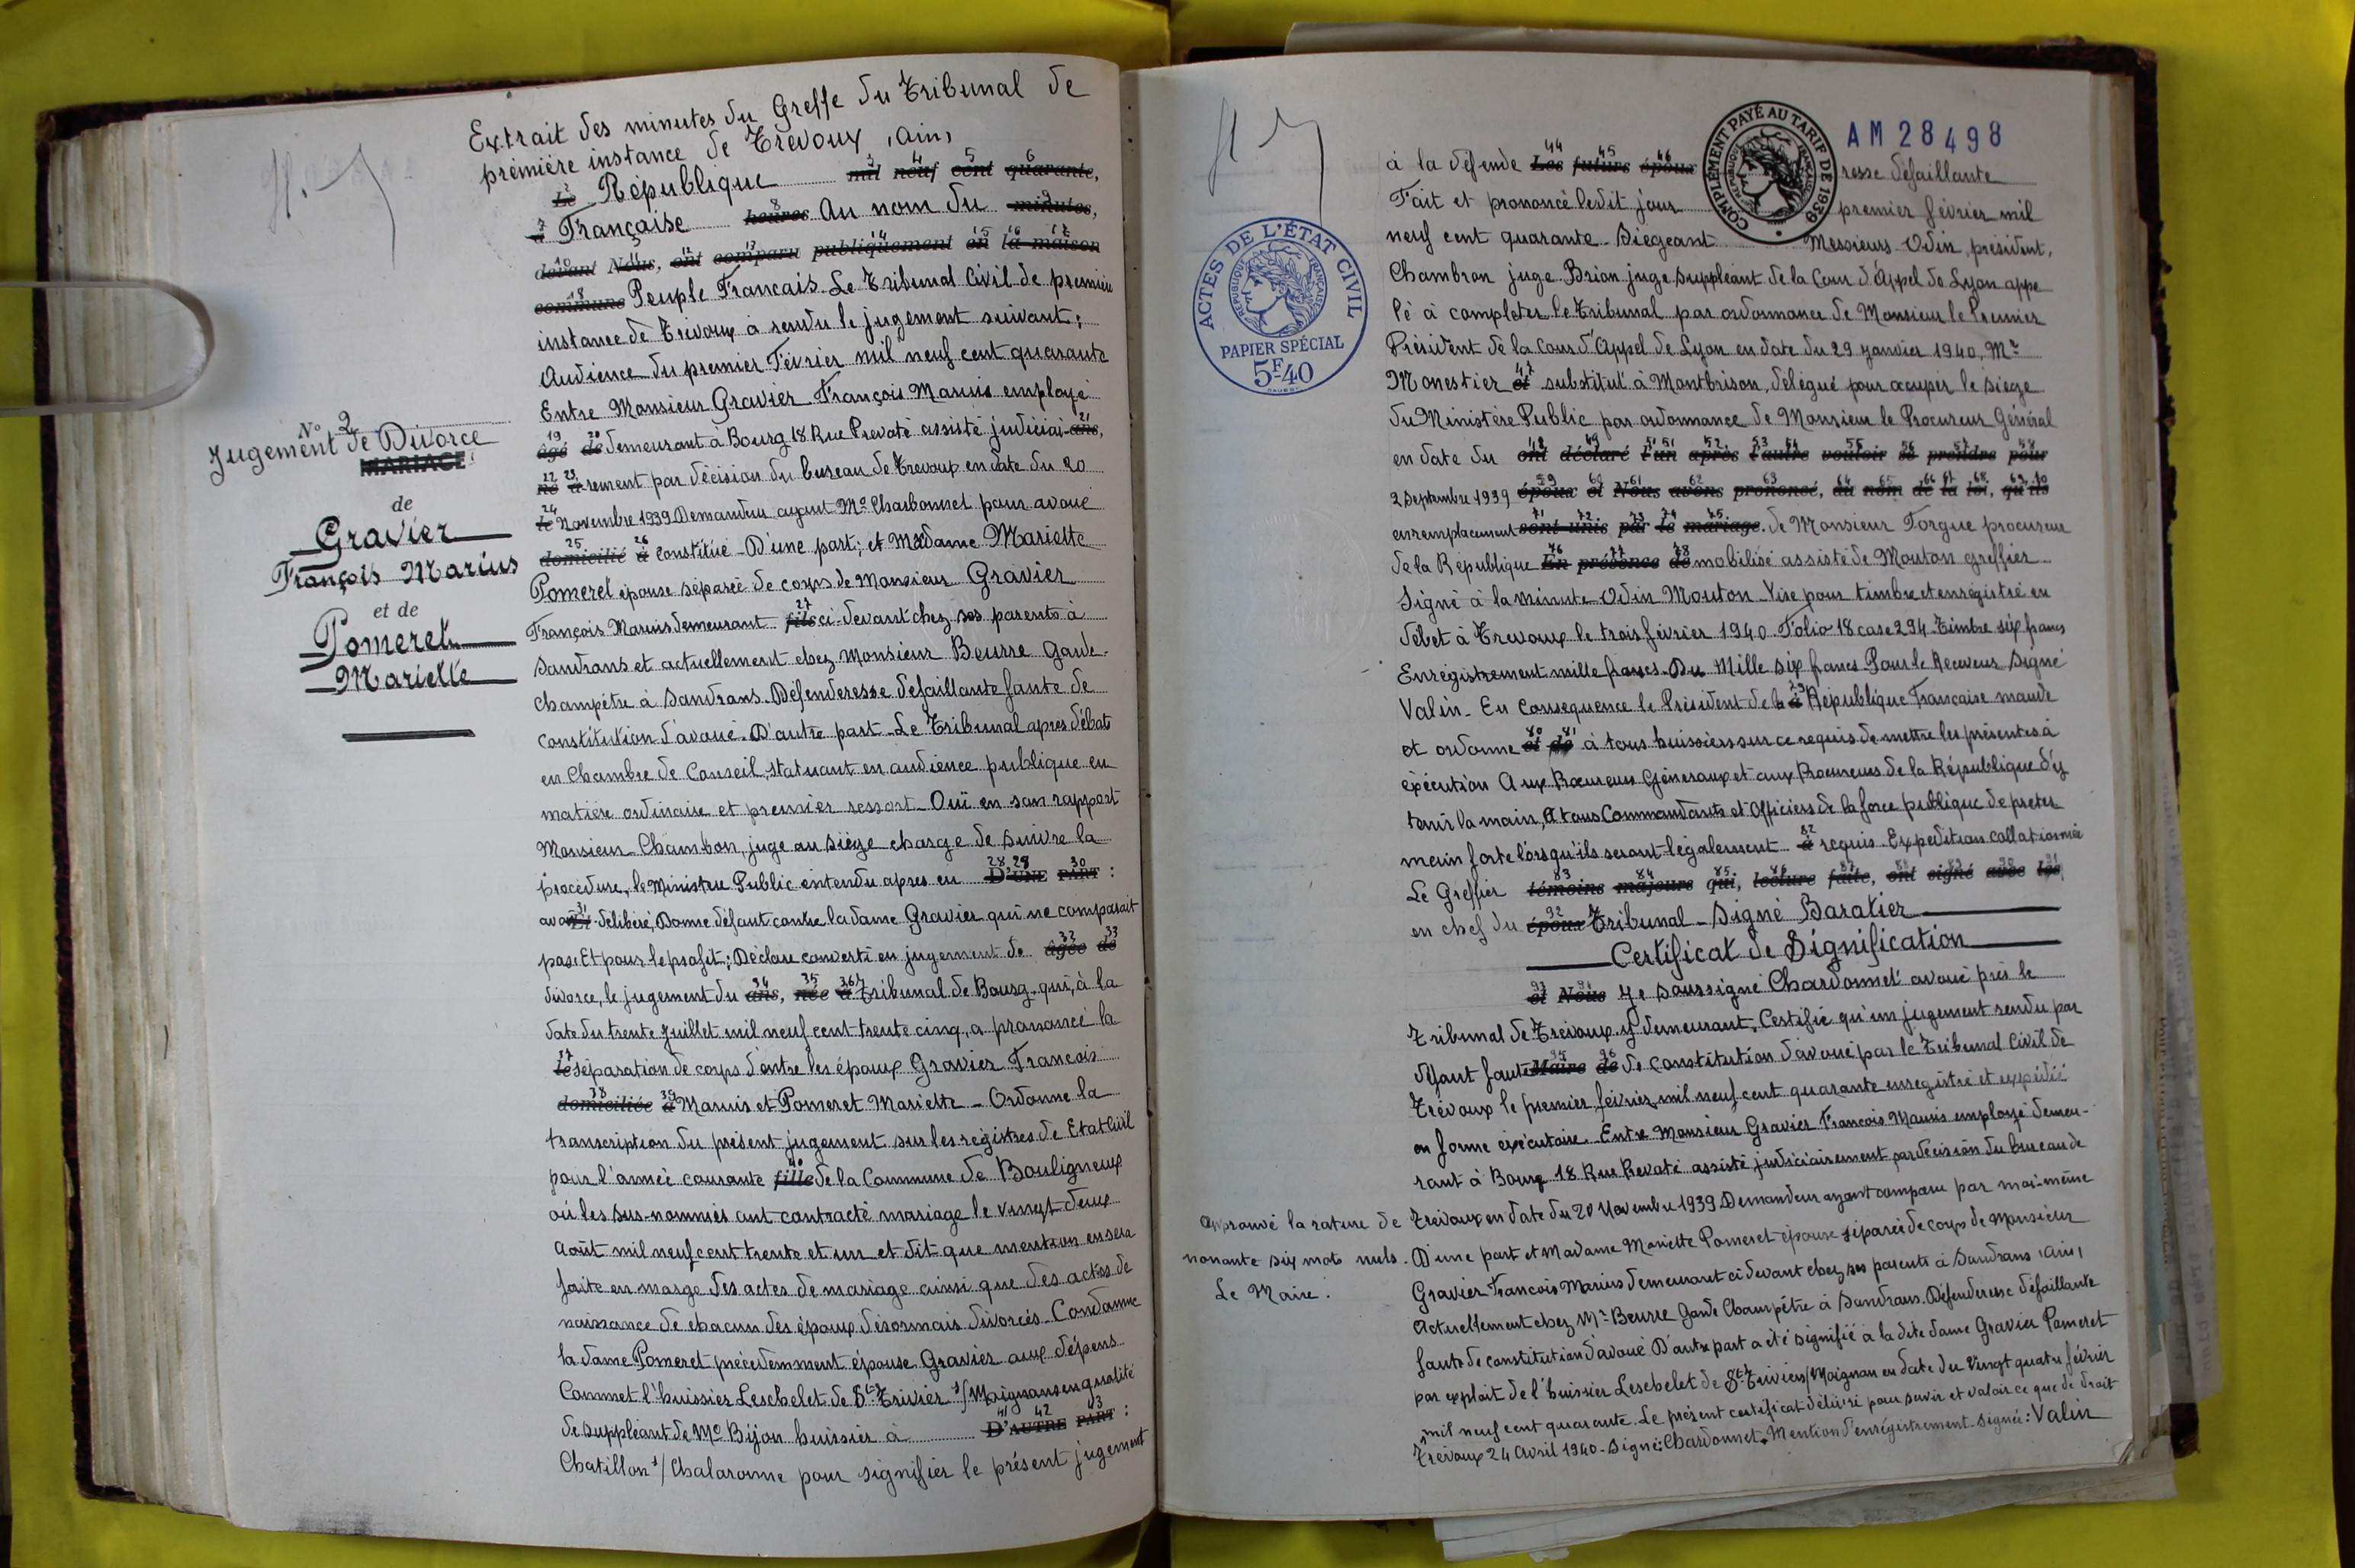 Extrait des minutes du Greffe du Tribunal de
première instance de Trévoux, (Ain)
Le République mil neuf cent quarante,
à Française heures Au nom du minutes,
devant Nous, ont comparu publiquement en la maison
commune Peuple Francais. Le Tribunal Civil de premiere
instance de Trévoux a rendu le jugement suivant:
Audience du premier Février mil neuf cent quarante
Entre Monsieur Gravier François Marius employé
âgé de demeurant à Bourg 18 Rue Prevoté assisté judiciai- ans,
né à rement par décision du bureau de Trevoux en date du 20
le Novembre 1939 Demandeur ayant Me Charbonnet pour avoué
domicilié à constitué - D'une part; et Madame Mariette
Pomeret épouse séparée de corps de Monsieur Gravier
François Marius demeurant fils ci-devant chez ses parents à
Sandrans et actuellement chez Monsieur Beurre Garde-
Champêtre à Sandrans. Défenderesse défaillante faute de
Constitution d'avoué. D'autre part - Le Tribunal apres débat
en Chambre de Conseil, statuant en audience publique en
matière ordinaire et premier ressort - Ouï en son rapport
Monsieur Chambon, juge au siège charge de suivre la
procédure, le Ministere Public entendu apres en D'UNE PART:
avoir Et délibéré, Donne défaut contre la dame Gravier qui ne comparait
pas: Et pour le profit; Déclare converti en jugement de âgée de
divorce, le jugement du ans, née à tribunal de Bourg, qui, à la
date du trente Juillet mil neuf cent trente cinq, a prononcé la
le séparation de corps d'entre les époux Gravier Francois
domiciliée à Marius et Pomeret Mariette - Ordonne la
transcription du présent jugement sur les registres de Etat Civil
pour l'année courante fille de la Commune de Bouligneux
où les sus-nommés ont contracté mariage le vingt deux
Août mil neuf cent trente et un et dit que mention en sera
faite en marge des actes de mariage ainsi que des actes de
naissance de chacun des époux désormais divorcés. Condamne
la dame Pomeret précedemment épouse Gravier aux dépens
Commet l'huissier Leschelet de St Trivier s/ Moignans en qualité
de suppléant de Me Bijon huissier à D'AUTRE PART:
Chatillon s/ Chalaronne pour signifier le présent jugement
No 2
Jugement de Divorce
MARIAGE
de
Gravier
François Marius
et de
Pomeret
Mariette
AM 28498
COMPLÉMENT PAYÉ AU TARIF DE 1939
RÉPUBLIQUE FRANÇAISE
ACTES DE L'ÉTAT CIVIL
RÉPUBLIQUE FRANÇAISE
PAPIER SPÉCIAL
5F40
à la défende Les futurs époux resse défaillante
Fait et prononcé le dit jour premier février mil
neuf cent quarante - Siègeant Messieurs Odin, président,
Chambron juge Brion juge suppléant de la Cour d'Appel de Lyon appe
lé à completer le Tribunal par ordonnance de Monsieur le Premier
Président de la Cour d'Appel de Lyon en date du 29 Janvier 1940, Mr
Monestier et substitut à Montbrison, délégué pour occuper le siège
du Ministère Public par ordonnance de Monsieur le Procureur Général
en date du ont déclaré l'un après l'autre vouloir se prendre pour
2 Septembre 1939 époux et Nous avons prononcé, au nom de la loi, qu'ils
en remplacement sont unis par le mariage. de Monsieur Torgue procureur
de la République En présence de mobilisé assisté de Mouton greffier
Signé à la minute Odin Mouton - Vise pour timbre et enregistré en
débet à Trevoux le trois février 1940. Folio 18 case 294. Timbre six francs
Enregistrement mille francs. Du Mille six francs Pour le Receveur Signé
Valin - En Conséquence le Président de la à République Française mande
et ordonne et de à tous huissiers sur ce requis de mettre les présentes à
exécution Aux Procureurs Généraux et aux Procureurs de la République d'y
tenir la main, A tous Commandants et Officiers de la force publique de preter
main forte lorsqu'ils seront légalement à requis. Expédition collationnée
Le Greffier témoins majeurs qui, lecture faite, ont signé avec les
en chef du époux Tribunal - Signé Baratier
Certificat de Signification
et Nous Je soussigné Chardonnet avoué près le
Tribunal de Trévoux y demeurant, Certifie qu'un jugement rendu par
défaut faute Maire de de constitution d'avoué par le Tribunal Civil de
Trévoux le premier février mil neuf cent quarante enregistré et expédié
en forme exécutoire. Entre Monsieur Gravier Francois Marius employé demeu-
rant à Bourg 18 Rue Prevoté assisté judiciairement par décision du bureau de
Trévoux en date du 20 Novembre 1939 Demandeur ayant comparu par moi-même
D'une part et Madame Mariette Pomeret épouse séparée de corps de Monsieur
Gravier Francois Marius demeurant ci devant chez ses parents à Sandrans (Ain)
Actuellement chez Mr Beurre Garde Champêtre à Sandrans. Défenderesse défaillante
faute de constitution d'avoué. D'autre part a été signifié à la dite dame Gravier Pomeret
par exploit de l'huissier Leschelet de St Triviers/Moignan en date du Vingt quatre février
mil neuf cent quarante. Le présent certificat délivré pour servir et valoir ce que de droit
Trévoux 24 Avril 1940 - Signé: Chardonnet. Mention d'enregistrement - signée: Valin
Approuvé la rature de
nonante six mots nuls.
Le Maire.